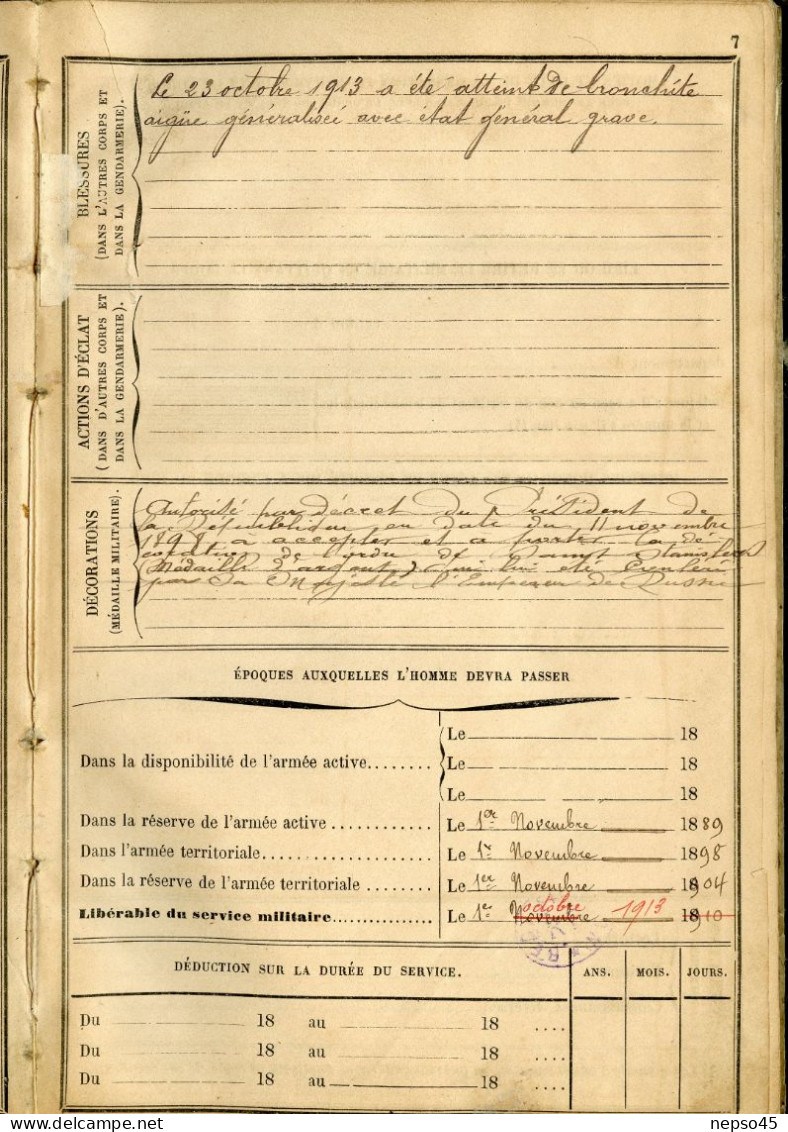 7
BLESSURES
(DANS L'AUTRES CORPS ET
DANS LA GENDARMERIE).
Le 23 octobre 1913 a été atteint de bronchite
aigüe généralisée avec état général grave.
ACTIONS D'ÉCLAT
(DANS D'AUTRES CORPS ET
DANS LA GENDARMERIE).
DÉCORATIONS
(MÉDAILLE MILITAIRE).
Autorisé par décret du Président de
la République en date du 11 novembre
1898 à accepter et à porter la dé
coration de l'ordre de Stanislas
(Médaille d'argent) qui lui été
par Sa Majesté l'Empereur de Russie
ÉPOQUES AUXQUELLES L'HOMME DEVRA PASSER
Le 18
Dans la disponibilité de l'armée active........ Le 18
Le 18
Dans la réserve de l'armée active ............ Le 1er Novembre 1889
Dans l'armée territoriale..................... Le 1er Novembre 1898
Dans la réserve de l'armée territoriale ....... Le 1er Novembre 1904
octobre 1913
Libérable du service militaire............... Le 1er Novembre 1910
DÉDUCTION SUR LA DURÉE DU SERVICE. ANS. MOIS. JOURS.
Du 18 au 18 ....
Du 18 au 18 ....
Du 18 au 18 ....
Delcampe.net
nepso45